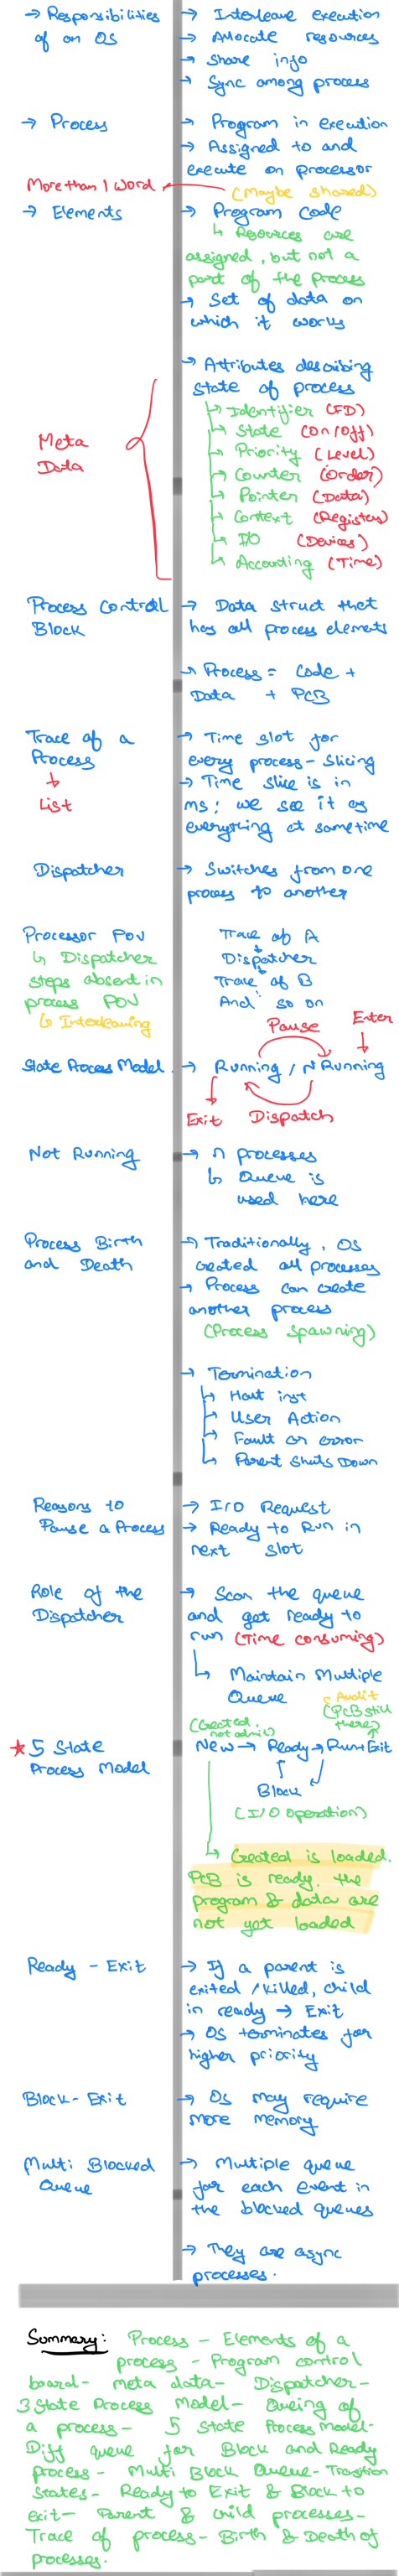 → Responsibilities
of an OS
→ Interleave execution
→ Allocate resources
→ Share info
→ Sync among process
→ Process
→ Program in execution
→ Assigned to and
execute on processor
More than 1 word
(Maybe shared)
→ Elements
→ Program Code
↳ Resources are
assigned, but not a
part of the process
→ Set of data on
which it works
→ Attributes describing
state of process
Meta
Data
→ Identifier (FD)
→ State (On/Off)
→ Priority (Level)
→ Counter (Order)
→ Pointer (Data)
→ Context (Registers)
→ I/O (Devices)
→ Accounting (Time)
Process Control
Block
→ Data struct that
has all process elements
→ Process = Code +
Data + PCB
Trace of a
Process
↓
List
→ Time slot for
every process - Slicing
→ Time slice is in
ms; we see it as
everything at same time
Dispatcher
→ Switches from one
process to another
Processor POV
↳ Dispatcher
steps absent in
process POV
↳ Interleaving
Trace of A
Dispatcher
Trace of B
And so on
Pause
Enter
State Process Model
→ Running / N Running
Exit
Dispatch
Not Running
→ n processes
↳ Queue is
used here
Process Birth
and Death
→ Traditionally, OS
created all processes
→ Process can create
another process
(Process Spawning)
→ Termination
→ Halt inst
→ User Action
→ Fault or error
→ Parent Shuts Down
Reasons to
Pause a Process
→ I/O Request
→ Ready to Run in
next slot
Role of the
Dispatcher
→ Scan the queue
and get ready to
run (Time consuming)
↳ Maintain Multiple
Queue
Audit
(PCB still
there)
(Created,
not admit)
★ 5 State
Process Model
New → Ready → Run → Exit
Block
(I/O operation)
↳ Created is loaded.
PCB is ready, the
program & data are
not yet loaded
Ready - Exit
→ If a parent is
exited / killed, child
in ready → Exit
→ OS terminates for
higher priority
Block - Exit
→ OS may require
more memory
Multi Blocked
Queue
→ Multiple queue
for each event in
the blocked queues
→ They are async
processes.
Summary: Process - Elements of a
process - Program control
board - meta data - Dispatcher -
3 State Process Model - Queing of
a process - 5 State Process Model -
Diff queue for Block and Ready
process - Multi Block Queue - Transition
States - Ready to Exit & Block to
exit - Parent & child processes -
Trace of process - Birth & Death of
processes.